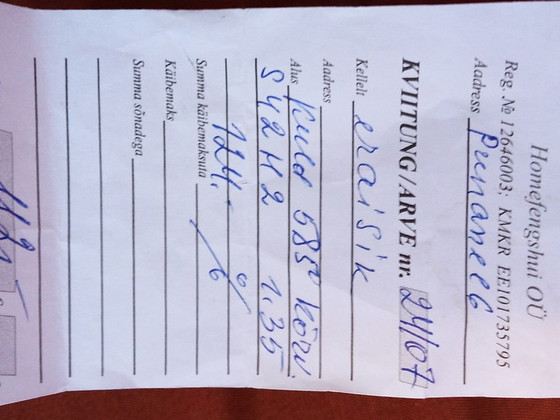 Homefengshui OÜ
Reg. № 12646003; KMKR EE101735795
Aadress Punane 6
KVIITUNG/ARVE nr. 24/07
Kellelt eraisik
Aadress
Alus kuld 585° kõrv.
S42H2 1.35
124.-
Summa käibemaksuta
Käibemaks
Summa sõnadega